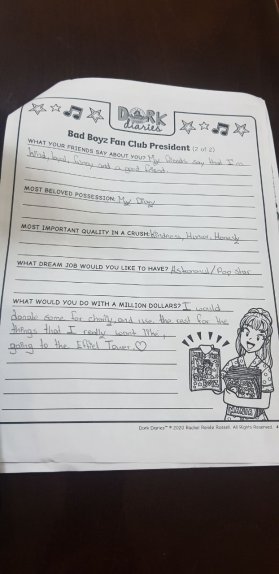 DORK
diaries
Bad Boyz Fan Club President (2 of 2)
WHAT YOUR FRIENDS SAY ABOUT YOU? My friends say that I'm
kind, loyal, funny and a good friend.
MOST BELOVED POSSESSION: My
MOST IMPORTANT QUALITY IN A CRUSH: Kindness, Humor, Honesty
WHAT DREAM JOB WOULD YOU LIKE TO HAVE? Astronaut/Pop star
WHAT WOULD YOU DO WITH A MILLION DOLLARS? I would
donate some for charity and use the rest for the
things that I really want like,
going to the Eiffel Tower.♡
Dork Diaries™ © 2020 Rachel Renée Russell. All Rights Reserved. 4